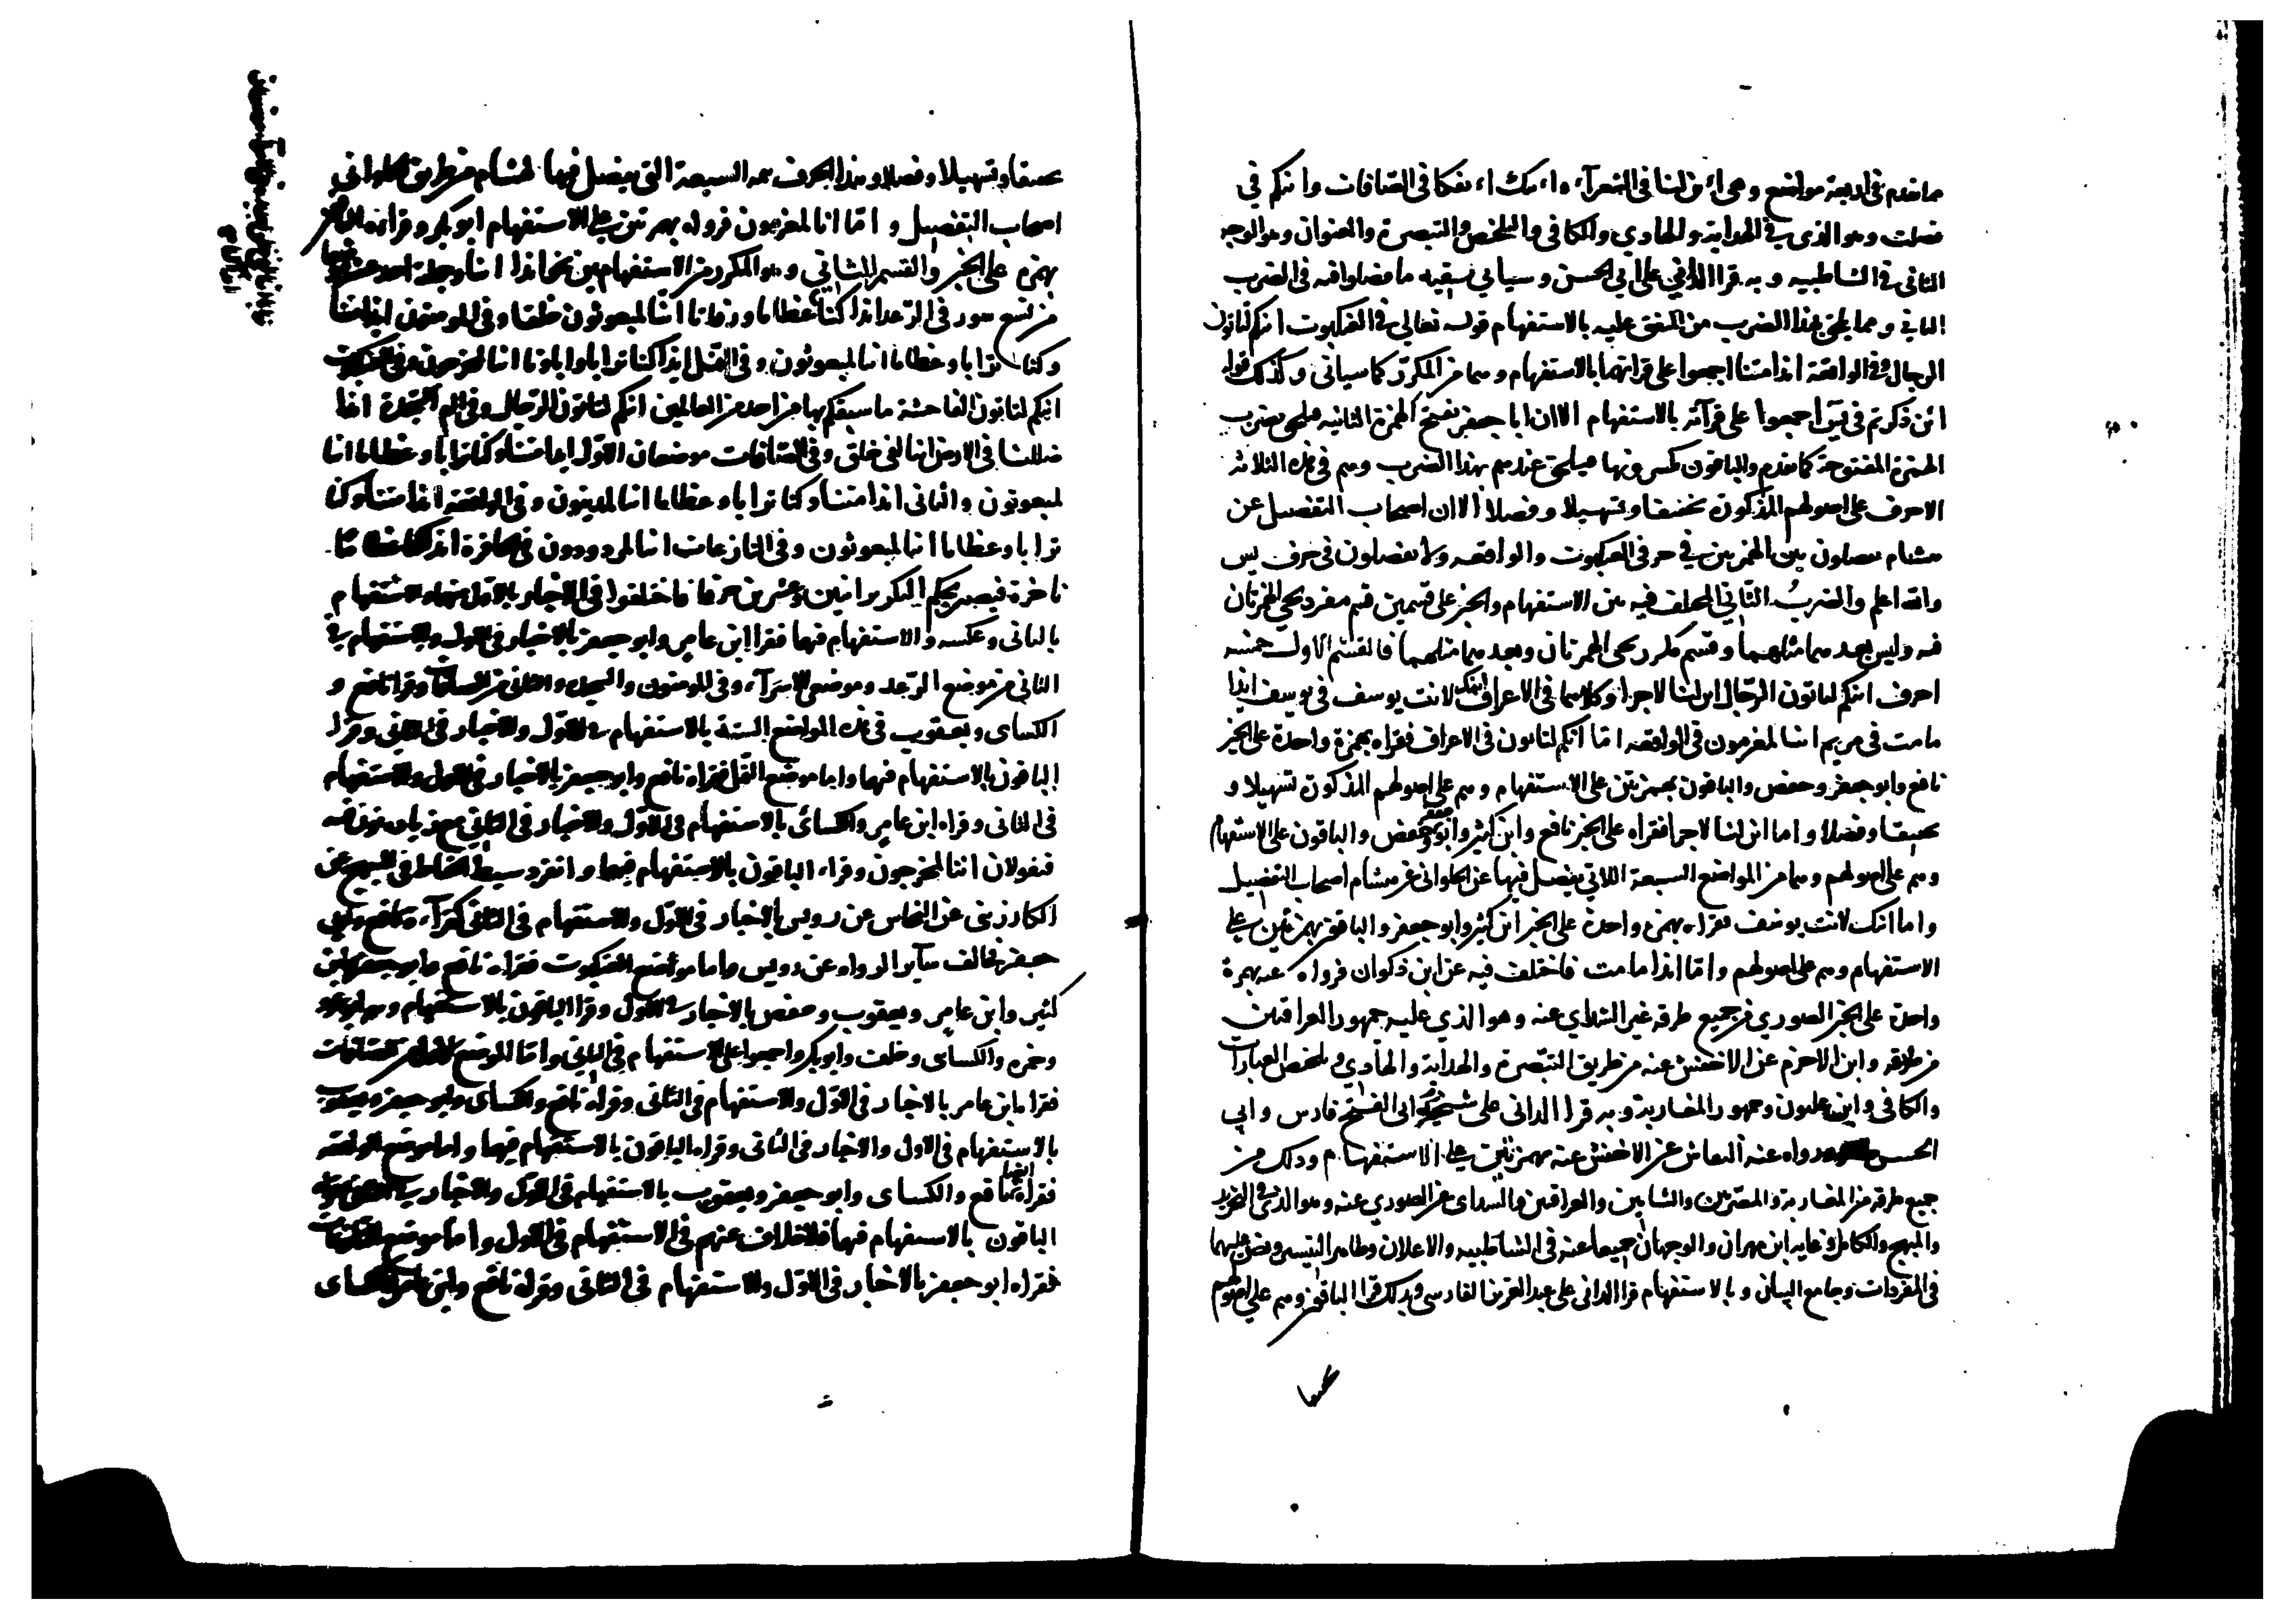 ما تقدم في اربعة مواضع وهي ائن لنا في الشعراء و ائنك ائفكا في الصافات وائنكم في
فصلت وهو الذي في الهداية والهادي والكافي والتلخيص والتبصرة والعنوان وهو الوجه
الثاني في الشاطبيه وبه قرا الداني على ابي الحسن وسياتي بقيه ما فصلوا فيه في الضرب
الثاني ومما يلحق بهذا الضرب من المتفق عليه بالاستفهام قوله تعالى في العنكبوت ائنكم لتاتون
الرجال وفي الواقعة ائذا متنا اجمعوا على قراتهما بالاستفهام وهما من المكرر كما سياتي وكذلك قوله
ائن ذكرتم في يس اجمعوا على قرآته بالاستفهام الا ان ابا جعفر بفتح الهمزة الثانيه فيلحق بضرب
الهمزة المفتوحة كما تقدم والباقون يكسرونها فيلحق عندهم بهذا الضرب وهم في هذه الثلاثة
الاحرف على اصولهم المذكورة تحقيقا وتسهيلا وفصلا الا ان اصحاب التفصيل عن
هشام يفصلون بين الهمزتين في حرفي العنكبوت والواقعه ولا يفصلون في حرف يس
والله اعلم والضرب الثاني المختلف فيه بين الاستفهام والخبر على قسمين قسم مفرد تجي الهمزتان
فيه وليس بعدهما مثلهما وقسم مكرر تجي الهمزتان وبعدهما مثلهما فالقسم الاول خمسه
احرف ائنكم لتاتون الرجال ائن لنا لاجرا وكلاهما في الاعراف ائنك لانت يوسف في يوسف ائذا
ما مت في مريم ائنا لمغرمون في الواقعه اما ائنكم لتاتون في الاعراف فقراه بهمزة واحدة على الخبر
نافع وابو جعفر وحفص والباقون بهمزتين على الاستفهام وهم على اصولهم المذكورة تسهيلا و
تحقيقا وفصلا واما ائن لنا لاجرا فقراه على الخبر نافع وابن كثير وابو جعفر وحفص والباقون على الاستفهام
وهم على اصولهم وهما من المواضع السبعة اللاتي يفصل فيها عن الحلواني عن هشام اصحاب التفصيل
واما ائنك لانت يوسف فقراه بهمزة واحدة على الخبر ابن كثير وابو جعفر والباقون بهمزتين على
الاستفهام وهم على اصولهم واما ائذا ما مت فاختلف فيه عن ابن ذكوان فرواه عنه بهمزة
واحدة على الخبر الصوري من جميع طرقه غير الشذاي عنه وهو الذي عليه جمهور العراقيين
من طرقه وابن الاخرم عن الاخفش عنه من طريق التبصرة والهداية والهادي وتلخيص العبارات
والكافي وابن غلبون وجمهور المغاربة وبه قرا الداني على شيخه ابي الفتح فارس وابي
الحسن ورواه عنه النقاش عن الاخفش عنه بهمزتين على الاستفهام وذلك من
جميع طرقه من المغاربة والمصريين والشاميين والعراقيين والشذاي عن الصوري عنه وهو الذي في التجريد
والمبهج والكامل وغاية ابن مهران والوجهان جميعا عنه في الشاطبيه والاعلان وظاهر التيسير ونص عليهما
في المفردات وجامع البيان وبالاستفهام قرا الداني على عبد العزيز الفارسي وبذلك قرا الباقون وهم على اصولهم
تحقيقا
تحقيقا وتسهيلا وفصلا وهذا الحرف تتمه السبعة التي يفصل فيها لهشام من طريق الحلواني
اصحاب التفصيل و اما انا لمغرمون فرواه بهمزتين على الاستفهام ابو بكر وقراه الباقون
بهمزة على الخبر والقسم الثاني وهو المكرر من الاستفهامين نحو ائذا ائنا وجملته احد عشر موضعا
من تسع سور في الرعد ائذا كنا عظاما ورفاتا ائنا لمبعوثون خلقا وفي المومنون ائذا متنا
وكنا ترابا وعظاما انا لمبعوثون وفي النمل ائذا كنا ترابا واباونا ائنا لمخرجون وفي العنكبوت
ائنكم لتاتون الفاحشة ما سبقكم بها من احد من العالمين ائنكم لتاتون الرجال وفي الم السجدة ائذا
ضللنا في الارض ائنا لفي خلق وفي الصافات موضعان الاول ائذا متنا وكنا ترابا وعظاما ائنا
لمبعوثون والثاني ائذا متنا وكنا ترابا وعظاما ائنا لمدينون وفي الواقعة ائذا متنا وكنا
ترابا وعظاما ائنا لمبعوثون وفي النازعات ائنا لمردودون في الحافرة ائذا كنا عظاما
ناخرة فيصير بحكم التكرير اثنين وعشرين حرفا فاختلفوا في الاخبار بالاول منهما والاستفهام
بالثاني وعكسه والاستفهام فيهما فقرا ابن عامر وابو جعفر بالاخبار في الاول والاستفهام في
الثاني من موضع الرعد وموضعي الاسراء وفي المومنون والسجدة والثاني من الصافات وقرا نافع و
الكساي ويعقوب في هذه المواضع الستة بالاستفهام في الاول والاخبار في الثاني وقرا
الباقون بالاستفهام فيهما واما موضع النمل فقراه نافع وابو جعفر بالاخبار في الاول والاستفهام
في الثاني وقراه ابن عامر والكسائي بالاستفهام في الاول والاخبار في الثاني مع زيادة نون فيه
فيقولان اننا لمخرجون وقراه الباقون بالاستفهام فيهما وانفرد سبط الخياط في المبهج عن
الكارزيني عن النخاس عن رويس بالاخبار في الاول والاستفهام في الثاني كقرآءة نافع وابي
جعفر فخالف سآئر الرواه عن رويس واما موضع العنكبوت فقراه نافع وابو جعفر وابن
كثير وابن عامر ويعقوب وحفص بالاخبار في الاول وقرا الباقون بالاستفهام وهم ابو عمرو
وحمزه والكساي وخلف وابو بكر واجمعوا على الاستفهام في الثاني واما الموضع الاول من الصافات
فقراه ابن عامر بالاخبار في الاول والاستفهام في الثاني وقراه نافع والكساي وابو جعفر ويعقوب
بالاستفهام في الاول والاخبار في الثاني وقراه الباقون بالاستفهام فيهما واما موضع الواقعه
فقراه ايضا نافع والكساي وابو جعفر ويعقوب بالاستفهام في الاول والاخبار في الثاني وقراه
الباقون بالاستفهام فيهما فلا خلاف عنهم في الاستفهام في الاول واما موضع النازعات
فقراه ابو جعفر بالاخبار في الاول والاستفهام في الثاني وقراه نافع وابن عامر والكساي